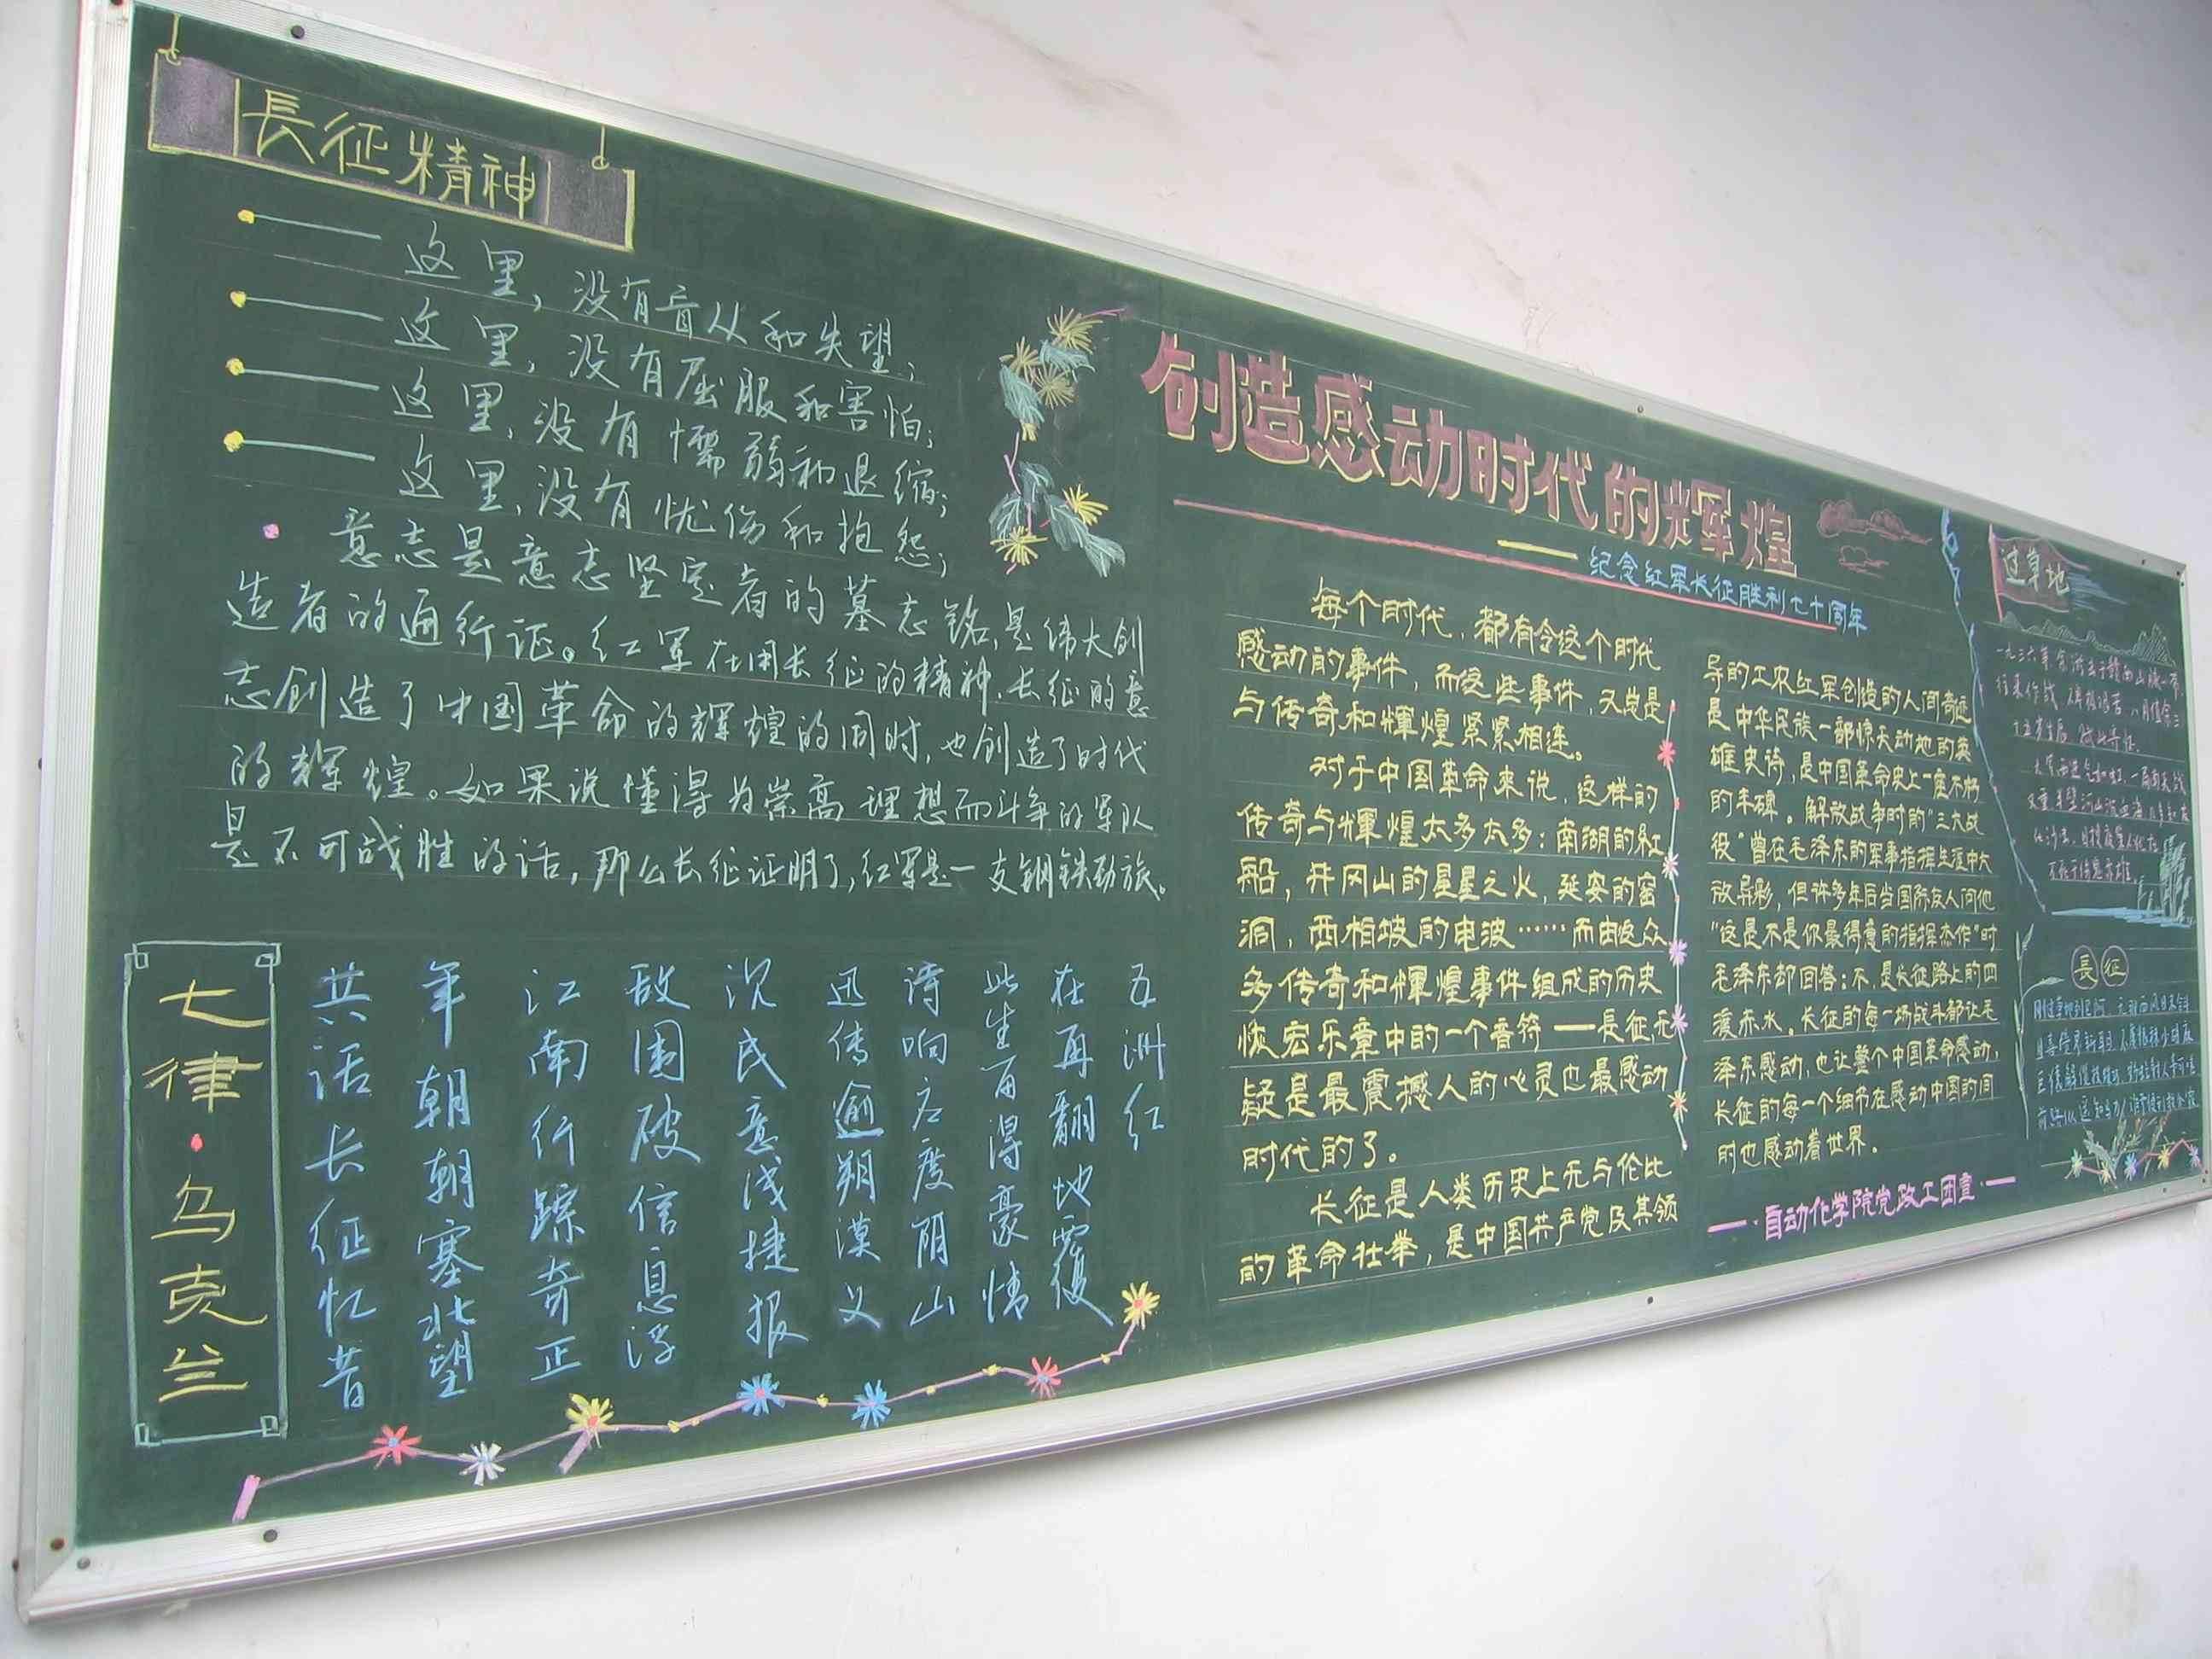 長征精神
这里，没有盲从和失望；
这里，没有屈服和害怕；
这里，没有懦弱和退缩；
这里，没有忧伤和抱怨；
意志是意志坚定者的墓志铭，是伟大创
造者的通行证。红军在用长征的精神、长征的意
志创造了中国革命的辉煌的同时，也创造了时代
的辉煌。如果说懂得为崇高理想而斗争的军队
是不可战胜的话，那么长征证明了，红军是一支钢铁劲旅。
七律·乌克兰
共话长征忆昔
年朝朝塞北望
江南行踪奇正
敌围破信息浮
沉民意浅捷报
迅传逾朔漠义
诗响应度阴山
此生百得豪情
在再翻地覆
五洲红
创造感动时代的辉煌
——纪念红军长征胜利七十周年
每个时代，都有令这个时代
感动的事件，而这些事件，又总是
与传奇和輝煌紧紧相连。
对于中国革命来说，这样的
传奇与輝煌太多太多：南湖的红
船，井冈山的星星之火，延安的窑
洞，西柏坡的电波……而由这众
多传奇和輝煌事件组成的历史
恢宏乐章中的一个音符——長征，无
疑是最震撼人的心灵也最感动
时代的了。
长征是人类历史上无与伦比
的革命壮举，是中国共产党及其领
导的工农红军创造的人间奇迹
是中华民族一部惊天动地的英
雄史诗，是中国革命史上一座不朽
的丰碑。解放战争时的“三大战
役”曾在毛泽东的军事指挥生涯中大
放异彩，但许多年后当国际友人问他
“这是不是你最得意的指挥杰作”时
毛泽东却回答：不，是长征路上的四
渡赤水。长征的每一场战斗都让毛
泽东感动，也让整个中国革命感动，
长征的每一个细节在感动中国的同
时也感动着世界。
——·自动化学院党政工团宣·——
过草地
長征